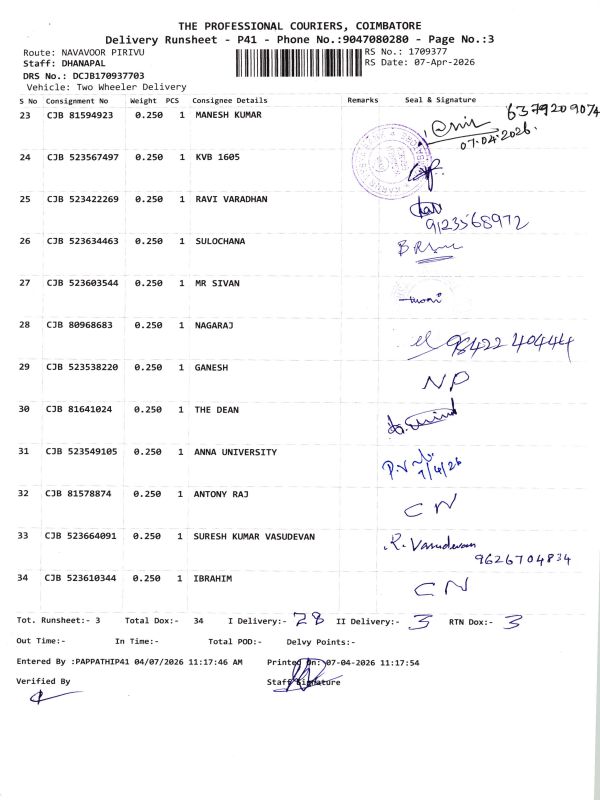 THE PROFESSIONAL COURIERS, COIMBATORE
Delivery Runsheet - P41 - Phone No.:9047080280 - Page No.:3
Route: NAVAVOOR PIRIVU RS No.: 1709377
Staff: DHANAPAL RS Date: 07-Apr-2026
DRS No.: DCJB170937703
Vehicle: Two Wheeler Delivery
S No Consignment No Weight PCS Consignee Details Remarks Seal & Signature
23 CJB 81594923 0.250 1 MANESH KUMAR 6379209074
07.04.2026.
24 CJB 523567497 0.250 1 KVB 1605
25 CJB 523422269 0.250 1 RAVI VARADHAN
9123568972
26 CJB 523634463 0.250 1 SULOCHANA
27 CJB 523603544 0.250 1 MR SIVAN
28 CJB 80968683 0.250 1 NAGARAJ
98422 40444
29 CJB 523538220 0.250 1 GANESH
NP
30 CJB 81641024 0.250 1 THE DEAN
31 CJB 523549105 0.250 1 ANNA UNIVERSITY
7/4/26
32 CJB 81578874 0.250 1 ANTONY RAJ
CN
33 CJB 523664091 0.250 1 SURESH KUMAR VASUDEVAN R. Vasudevan
9626704834
34 CJB 523610344 0.250 1 IBRAHIM CN
Tot. Runsheet:- 3 Total Dox:- 34 I Delivery:- 28 II Delivery:- 3 RTN Dox:- 3
Out Time:- In Time:- Total POD:- Delvy Points:-
Entered By :PAPPATHIP41 04/07/2026 11:17:46 AM Printed On: 07-04-2026 11:17:54
Verified By Staff Signature